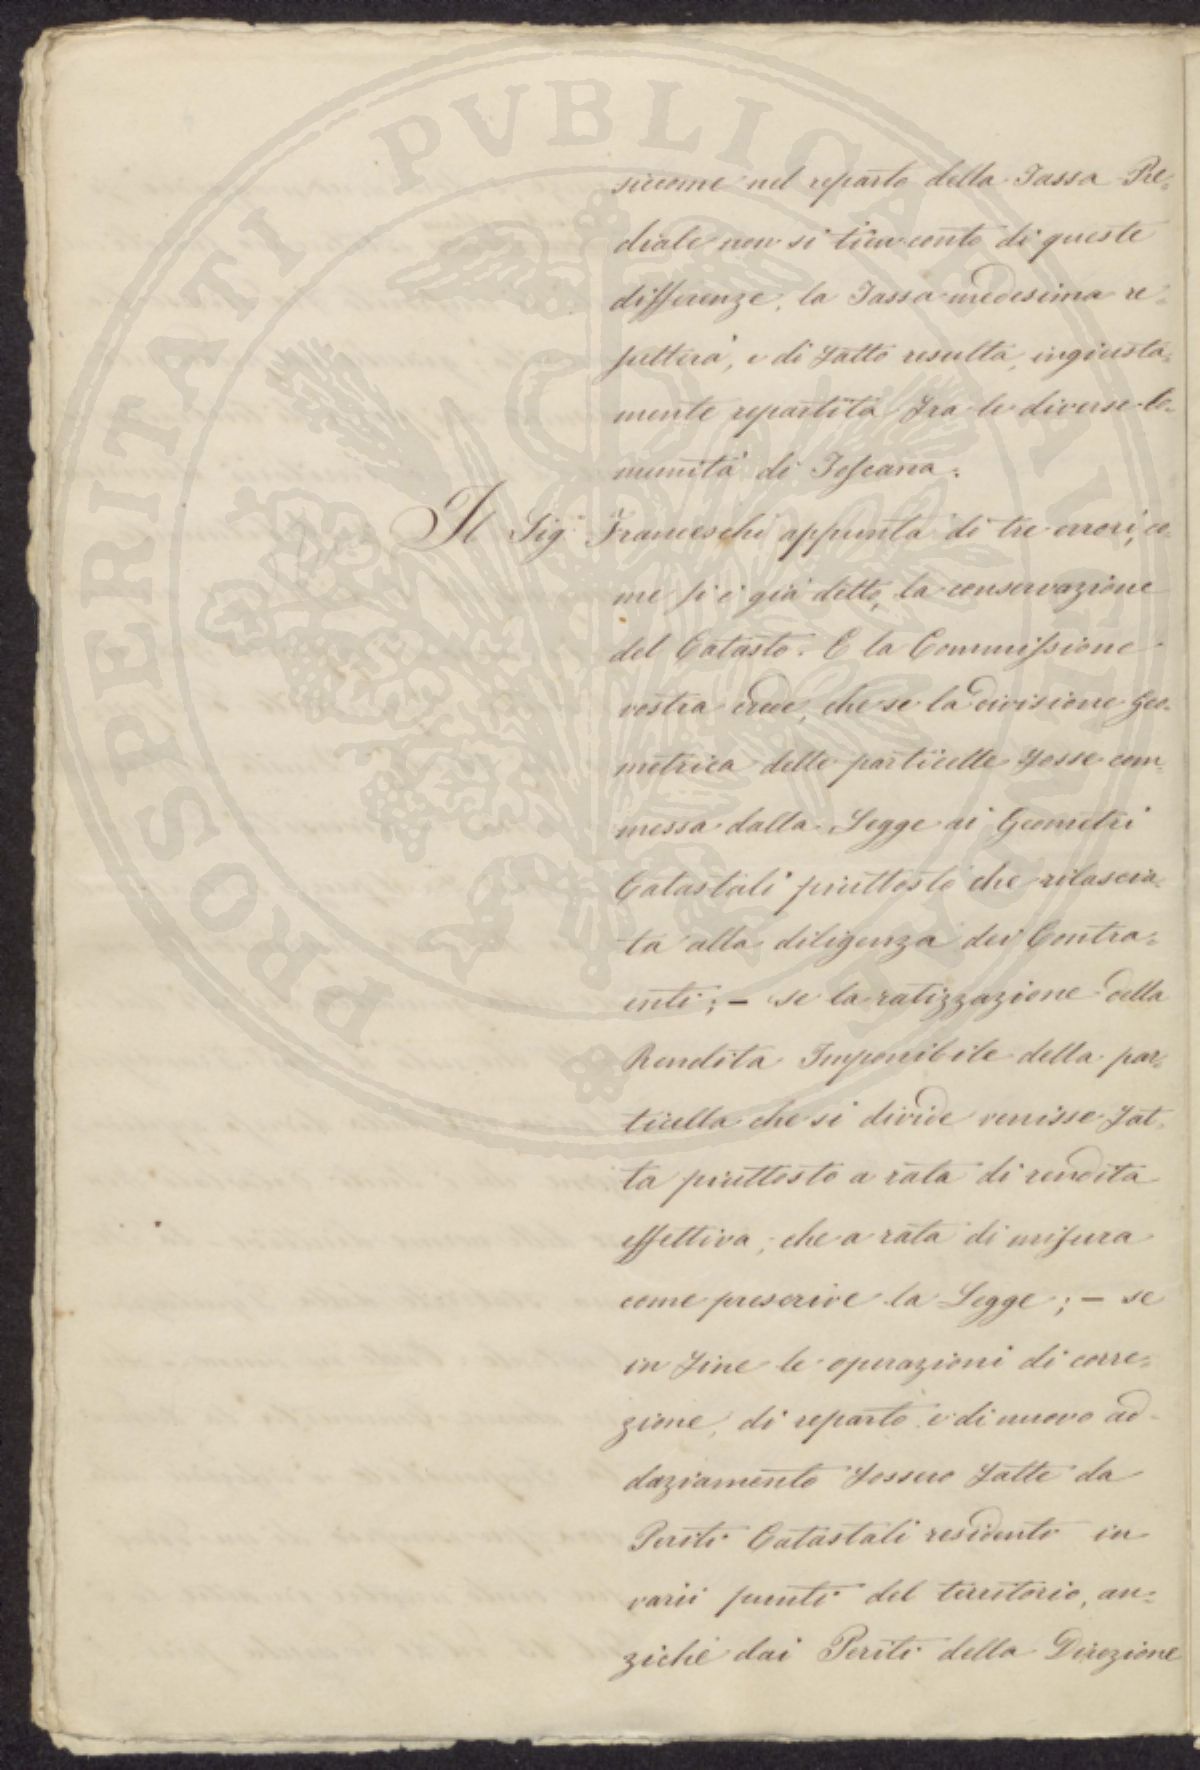 PROSPERITATI PVBLICAE
siccome nel reparto della Tassa Pre=
diale non si tien conto di queste
differenze, la Tassa medesima re=
sulterà, e di fatto resulta, ingiusta=
mente repartita fra le diverse Co=
munità di Toscana.
Il Sig.r Franceschi appunta di tre errori, co=
me si è già detto, la conservazione
del Catasto. E la Commissione
vostra crede, che se la divisione geo=
metrica delle particelle fosse com=
messa dalla Legge ai Geometri
Catastali piuttosto che rilascia=
ta alla diligenza dei Contra=
enti; — se la ratizzazione della
Rendita Imponibile della par=
ticella che si divide venisse fat=
ta piuttosto a rata di rendita
effettiva, che a rata di misura
come prescrive la Legge; — se
in fine le operazioni di corre=
zione, di reparto e di nuovo ad=
daziamento fossero fatte da
Periti Catastali residenti in
varii punti del territorio, an=
zichè dai Periti della Direzione